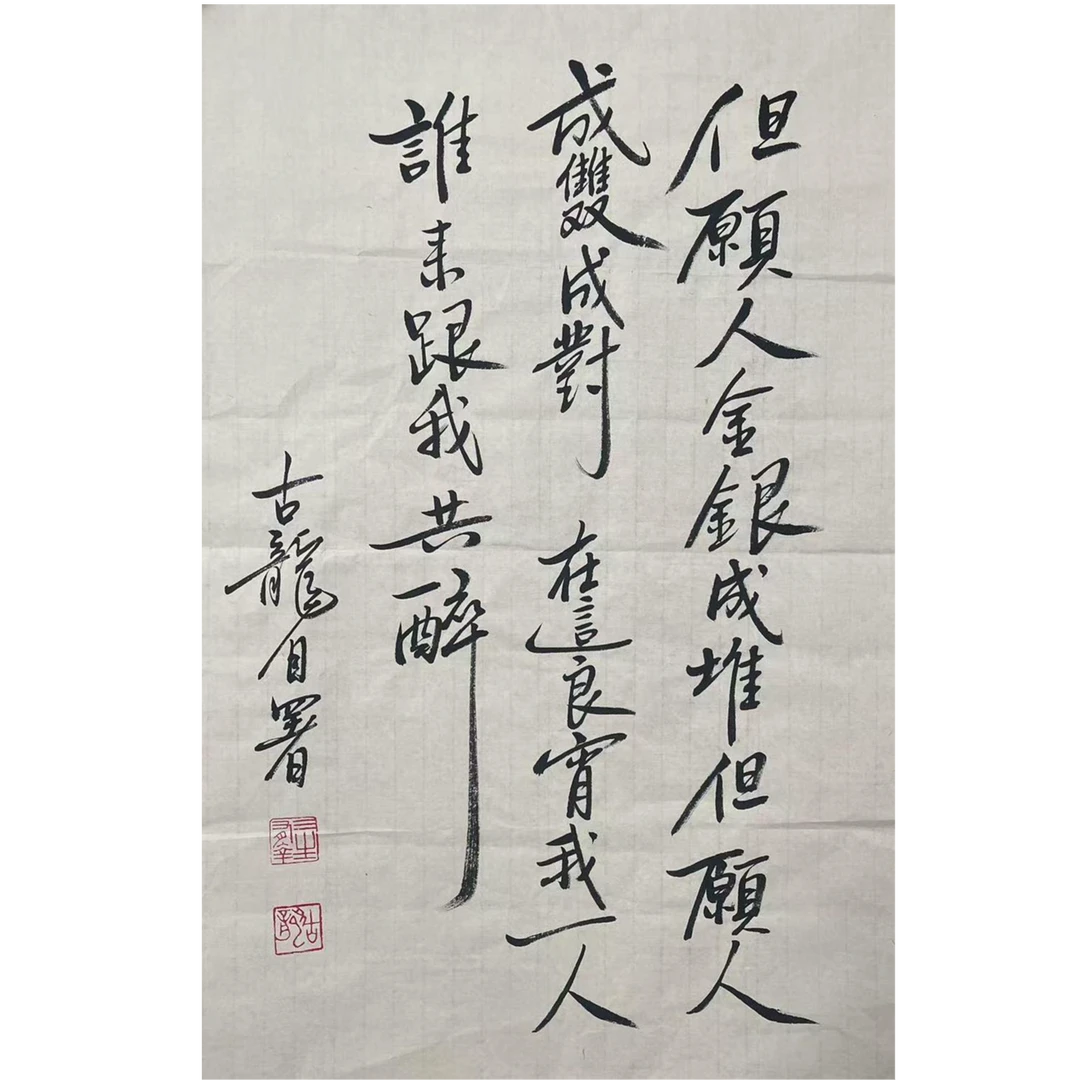 但願人金銀成堆但願人
成雙成對 在這良宵我一人
誰来跟我共一醉
古龍自署